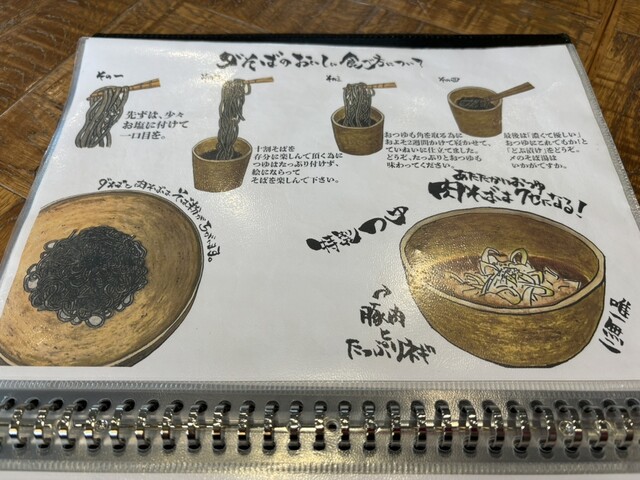 ダそばのおいしい食べ方について
その一
その二
その三
その四
先ずは、少々
お塩に付けて
一口目を。
十割そばを
存分に楽しんで頂く為に
つゆはたっぷり付けず、
絵にならって
そばを楽しんで下さい。
おつゆも角を取る為に
およそ2週間かけて寝かせて、
ていねいに仕立てました。
どうぞ、たっぷりとおつゆも
味わってください。
最後は「濃くて優しい」
おつゆにこれでもか!と
「どぶ漬け」をどうぞ。
〆のそば湯は
いかがですか。
あたたかいおつゆ
肉そばは
になる!
ダそばと肉そばはそば粉がちがいます。
豚肉
たっぷ
唯一無二